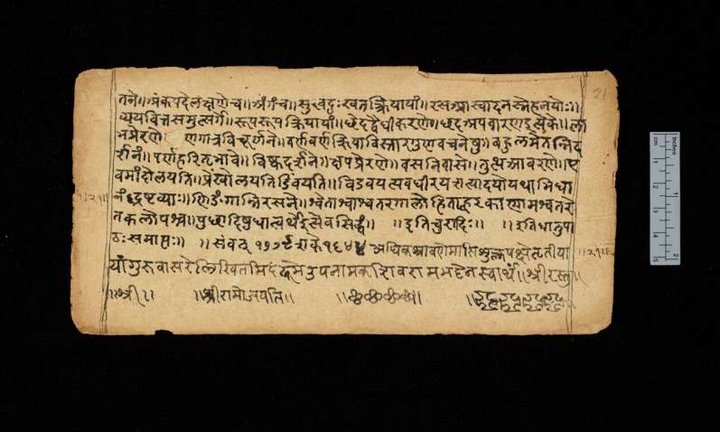 तने॥ अंक पदे लक्षणे च॥ अंग च॥ सुखदुःखतत्क्रियायां॥ रस आस्वादनस्नेहनयोः॥
व्यय वित्तसमुत्सर्गे॥ रूप रूपक्रियायां॥ छेद द्वैधीकरणे॥ छद अपवारण इत्येके॥ ला
भ प्रेरणे॥ गात्रविचूर्णने॥ वर्ण वर्णक्रियाविस्तारगुणवचनेषु॥ बहुलमेतन्निद
र्शनं॥ पर्ण हरितभावे॥ विष्क दर्शने॥ क्षप प्रेरणे॥ वस निवासे॥ तुत्थ आवरणे॥ ए
वमांदोलयति॥ प्रेंखोलयति विडंबयति॥ यथाभिधा
नं द्रष्टव्याः॥ श्वेताश्वाश्वतरगालोडिताह्वरकाणामश्वतरे
तकलोपश्च॥ पुच्छादिषु धात्वर्थ इत्येव सिद्धं॥ ॥इति चुरादिः॥ ॥इति धातुपा
ठः समाप्तः॥ ॥संवत् १७७९ शके १६४४ अधिकश्रावणमासि शुक्लपक्षे तृतीया
यां गुरुवासरे लिखितमिदं उपनामकशिवरामभटेन स्वार्थं॥ श्रीरस्तु॥
॥श्री॥ ॥श्रीरामोजयति॥
21